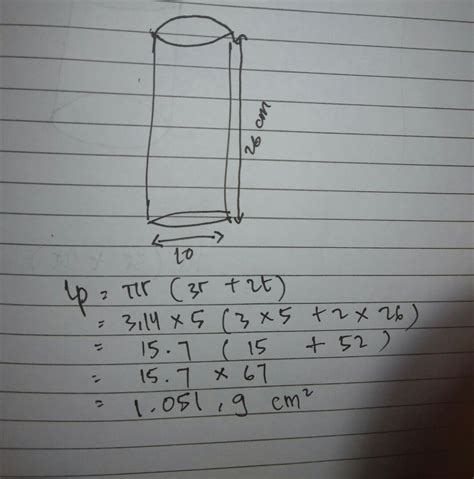 26 cm
10
Lp = πr (3r + 2t)
= 3,14 x 5 (3 x 5 + 2 x 26)
= 15.7 (15 + 52)
= 15.7 x 67
= 1.051,9 cm²